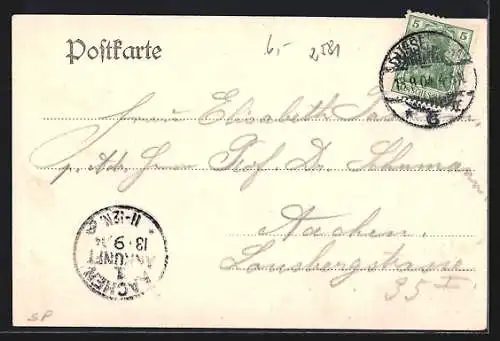 Postkarte
6,- 2581
5 5
13.9.04
* 6
Elisabeth
p. Adr. Herrn Prof. Dr. Schuman
Aachen
Lousbergstrasse
35
AACHEN
1
ANKUNFT
13.9.04
11-12N.
SP